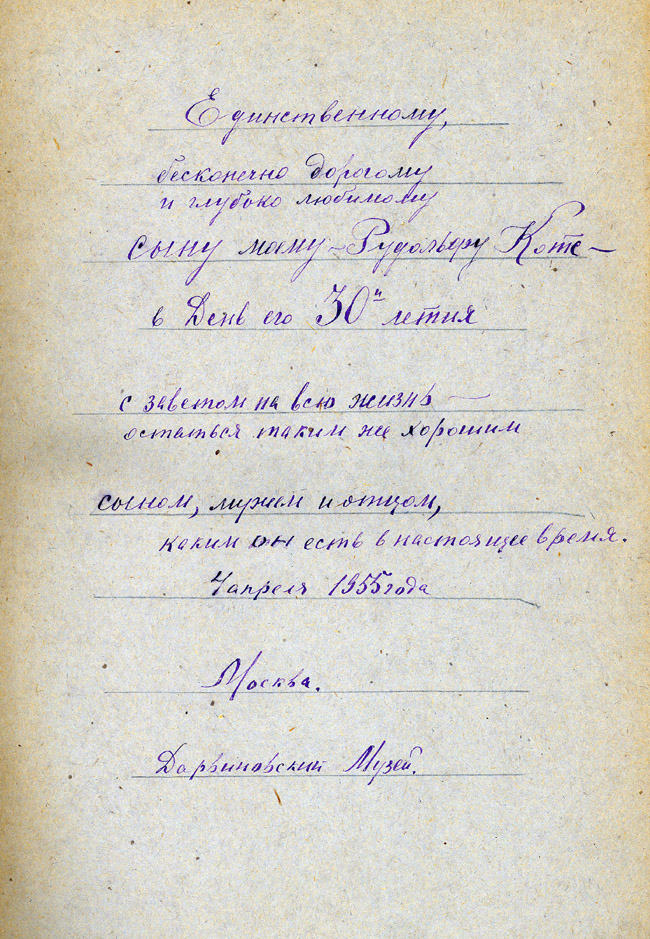 Единственному,
бесконечно дорогому
и глубоко любимому
сыну маму – Рудольфу Котс –
в День его 30и летия
с заветом на всю жизнь –
остаться таким же хорошим
сыном, мужем и отцом,
каким он есть в настоящее время.
4 апреля 1955 года
Москва.
Дарвиновский Музей.